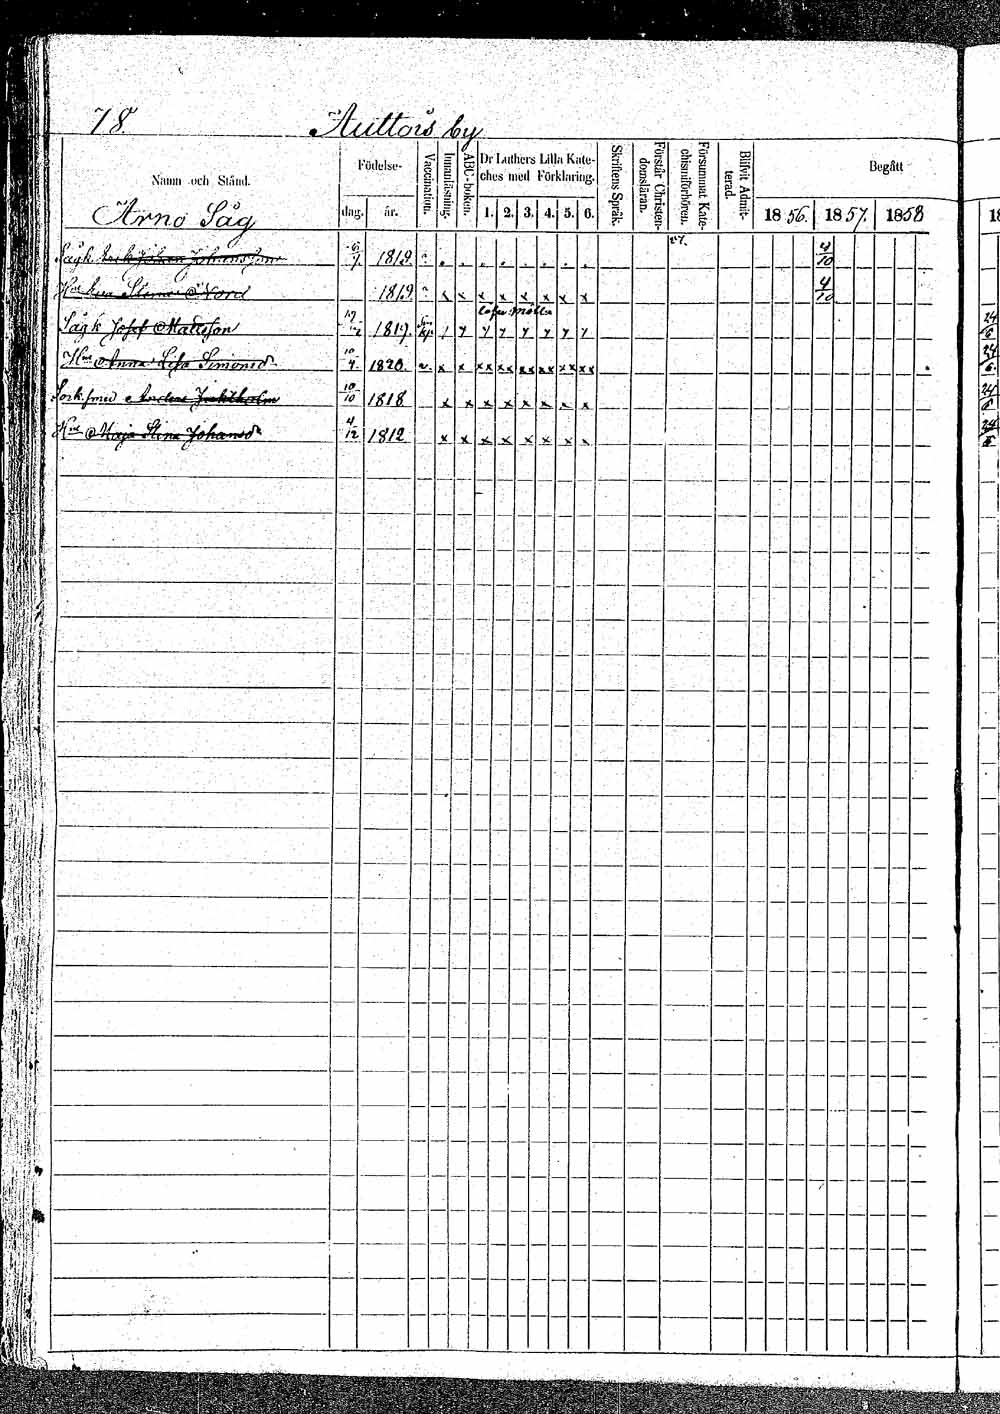 78. Auttois by
Namn och Stånd.
Födelse-
dag. år.
Vaccination.
Innanläsning.
ABC-boken.
Dr Luthers Lilla Kate-
ches med Förklaring.
1. 2. 3. 4. 5. 6.
Skriftens Språk.
Förstår Christen-
domsläran.
Försummat Kate-
chismiförhören.
Blifvit Admit-
terad.
Begått
1856. 1857. 1858
Arno Såg
Sågk Johan Johansson 1819 4/10
Hu Stina Nord 1819 x x x x x x x x 4/10
Sågk Josef Mattsson 1819
Hu Anna Lisa Simonsd 10/4 1820 v. x x xx xx xx xx xx xx
smed Anders 10/10 1818 x x x x x x x x
Hu Maja Stina Johansd 4/12 1812 x x x x x x x x